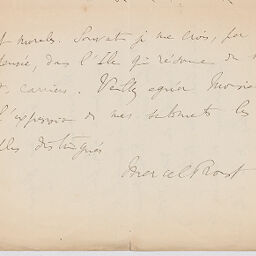 et morales. Souvent je me crois, par
pensée, dans l'Ile qui résonne de
vos carriers. Veuillez agréer Monsieur
l'expression de mes sentiments les
plus distingués
Marcel Proust